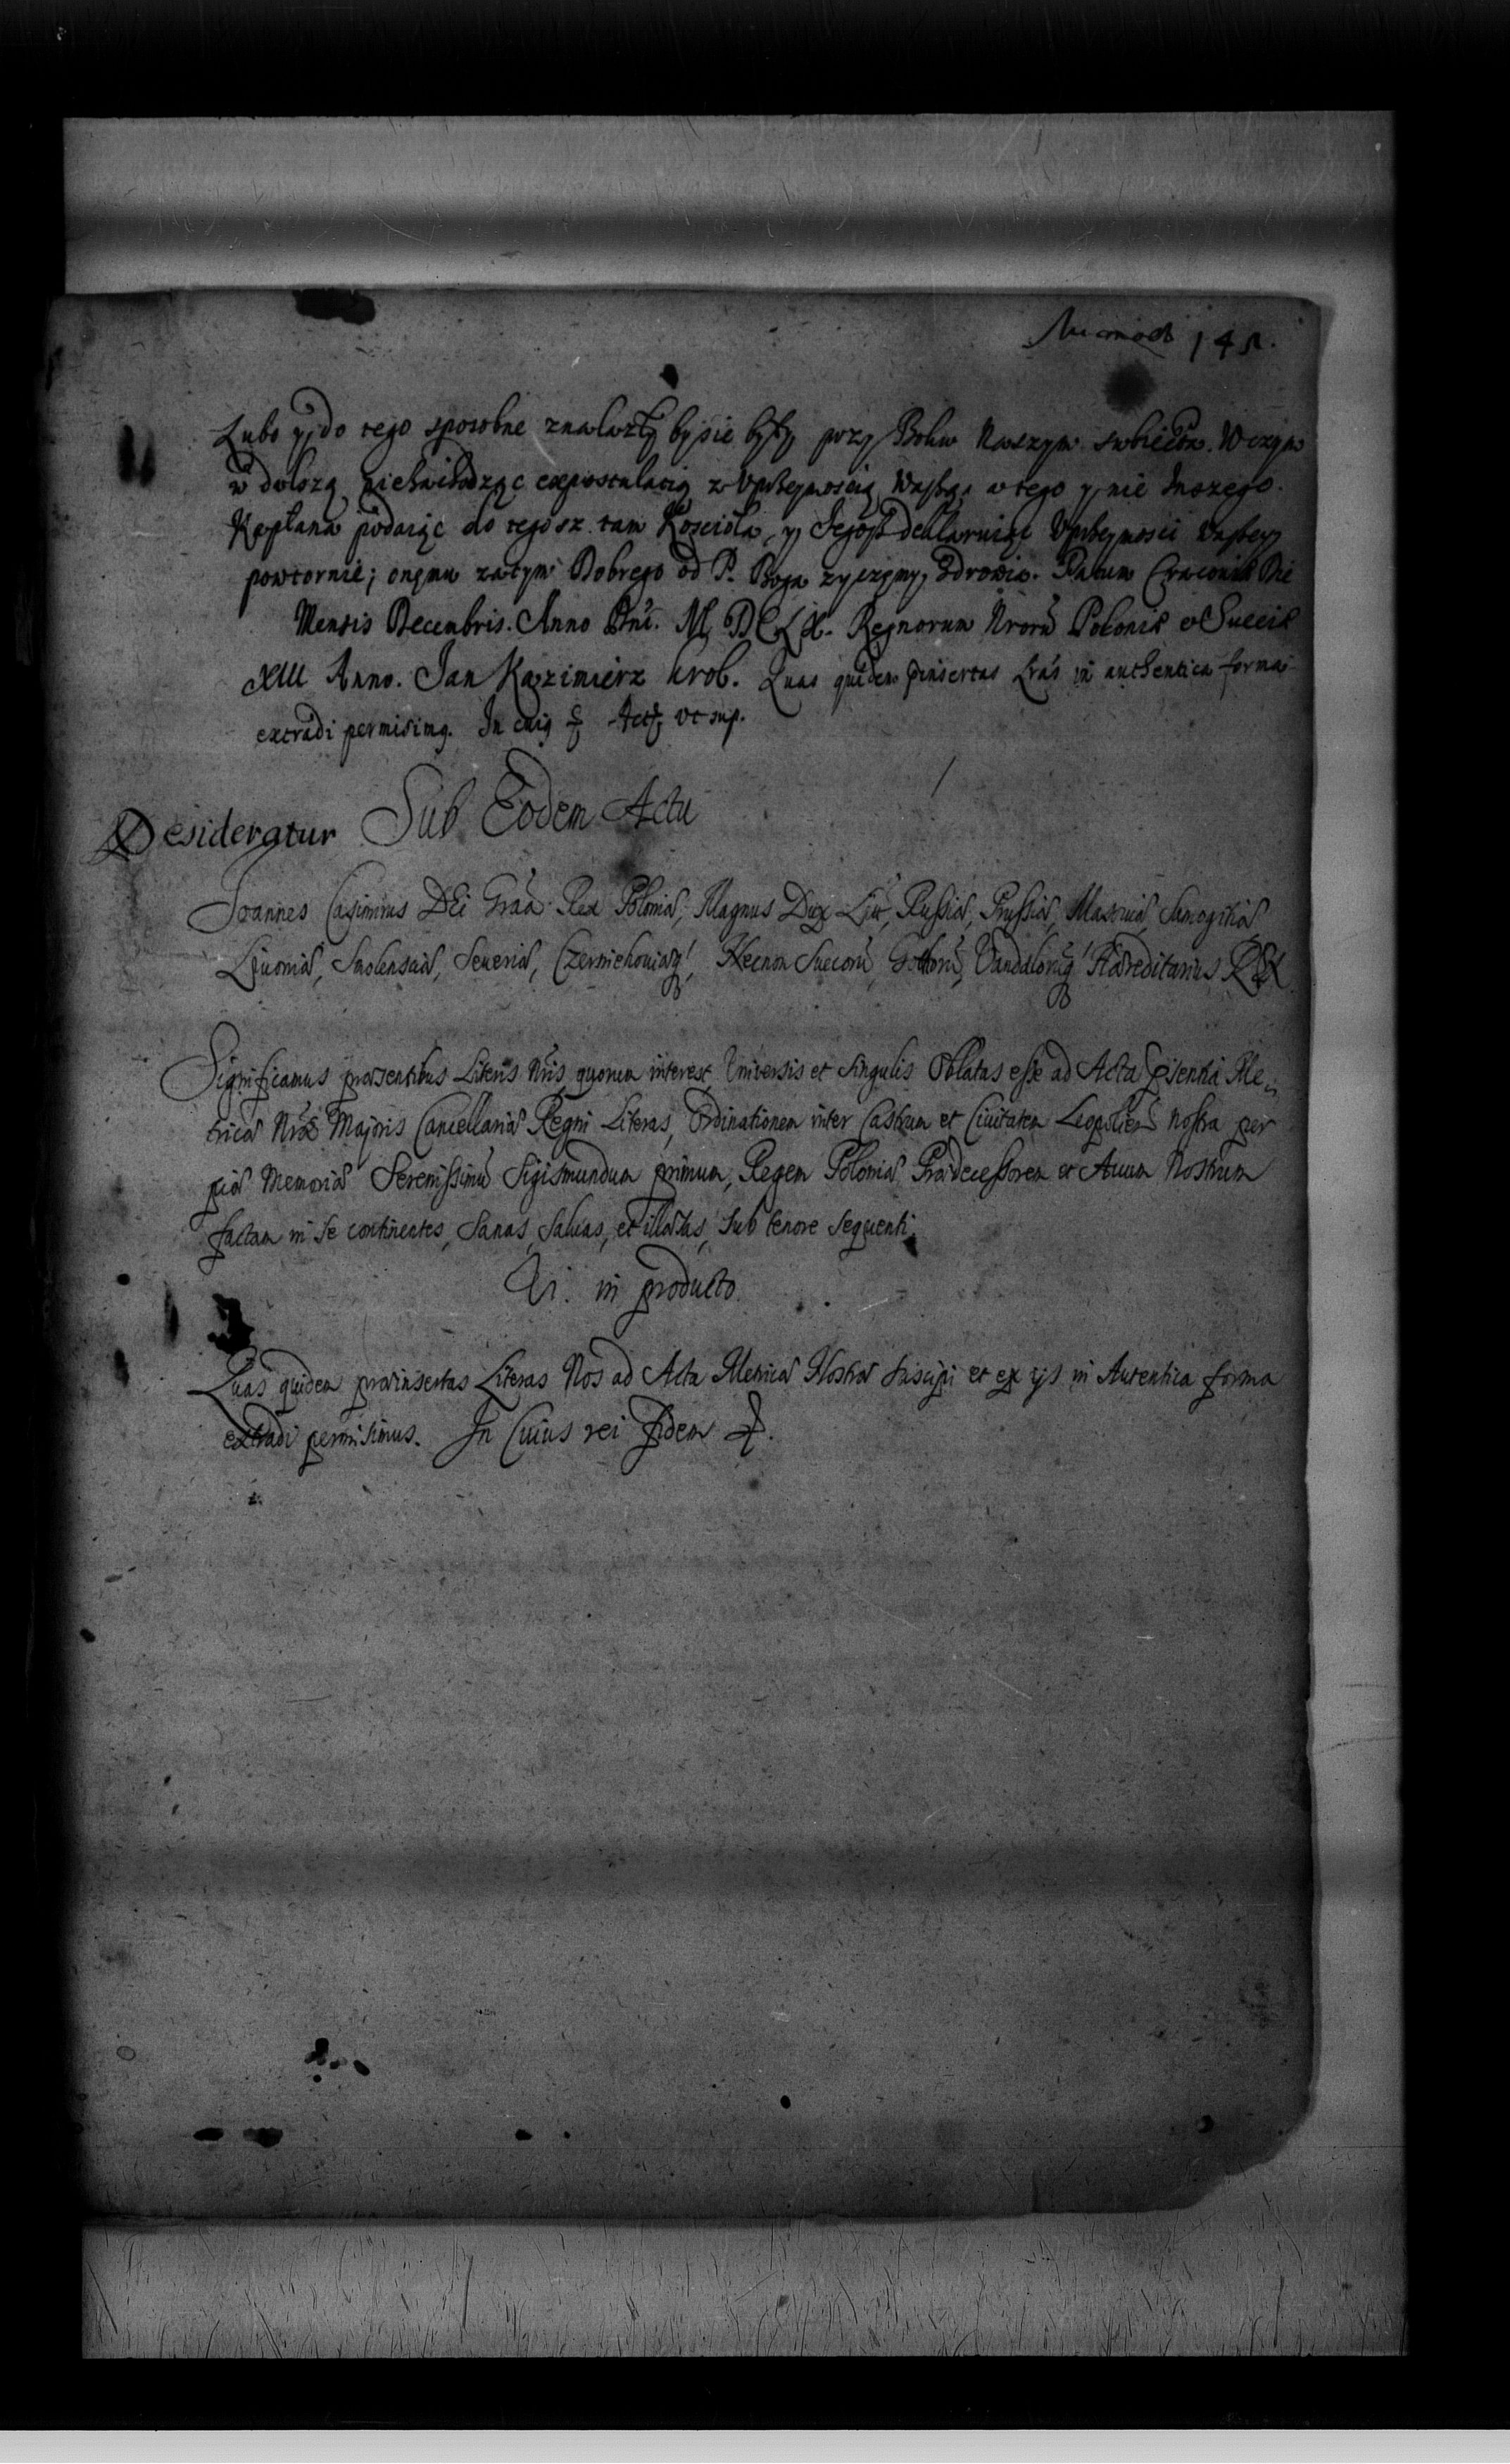 145.
Lubo y do tego sposobne znalazły by sie były przy Boku Naszym subiecta. W czym
w dalszą niewchodząc expostulatią z Uprzejmością Waszą, a tego y nie Inszego
Kapłana podaiąc do tegosz tam Kosciola, y Jegosz deklaruiąc Uprzejmosci Waszey
powtornie; onemu zatym Dobrego od P. Boga zyczymy Zdrowia. Datum Cracoviæ Die
Mensis Decembris. Anno Dni. M DC LX. Regnorum Nrorũ Poloniæ et Sueciæ
XIII Anno. Jan Kazimierz Krol. Quas quidem pinsertas Lrás in authentica forma
extradi permisimg. In cuig Actũ ut sup.
Desideratur Sub Eodem Actu
Joannes Casimirus DEi Grãa Rex Poloniæ, Magnus Dux Lit, Russiæ, Prussiæ, Masouiæ, Samogitiæ,
Liuoniæ, Smolensciæ, Seueriæ, Czerniechouiæq, Necnon Suecorũ, Gottorũ, Vandalorũq Hæreditarius REX
Significamus præsentibus Literis Nris quorum interest, Universis et singulis Oblatas esse ad Acta psentia Me-
tricæ Nræ Majoris Cancellariæ Regni Literas, Ordinationem inter Castrum et Ciuitatem Leopolien nostra per
piæ Memoriæ Serenissimũ Sigismundum primum, Regem Poloniæ Prædecessorem et Auum Nostrum
factam in se continentes, Sanas, Saluas, et illæsas, sub tenore sequenti
Ut in producto
Quas quidem præinsertas Literas Nos ad Acta Metricæ Nostræ suscipi et ex ijs in Autentica forma
extradi permisimus. In Cuius rei fidem